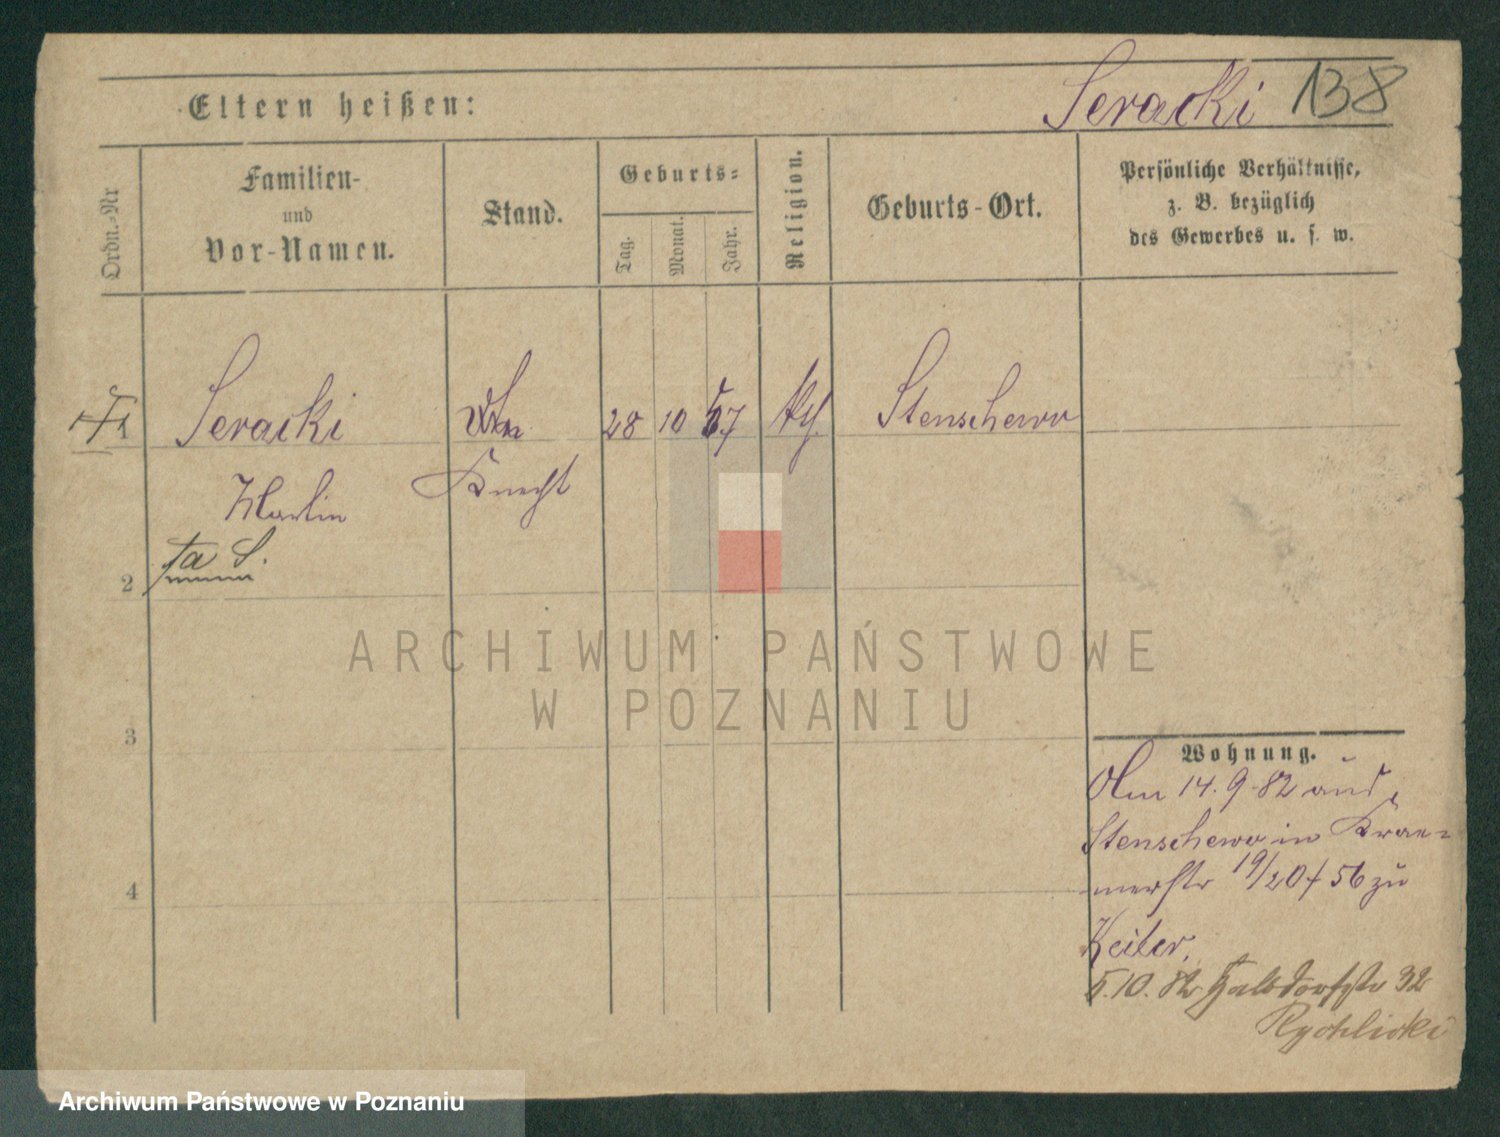 Eltern heißen:
Seracki 138
Ordn.-Nr
Familien-
und
Vor-Namen.
Stand.
Geburts-
Tag.
Monat.
Jahr.
Religion.
Geburts-Ort.
Persönliche Verhältnisse,
z. B. bezüglich
des Gewerbes u. s. w.
1 Seracki 28 10 57 kth. Stenschewo
Martin Knecht
2
3
4
Wohnung.
Am 14.9.82 aus
Stenschewo in Krae-
merstr 19/20 56 zu
Keiler,
5.10.82 Halbdorfstr 32
Rychlicki
ARCHIWUM PAŃSTWOWE
W POZNANIU
Archiwum Państwowe w Poznaniu